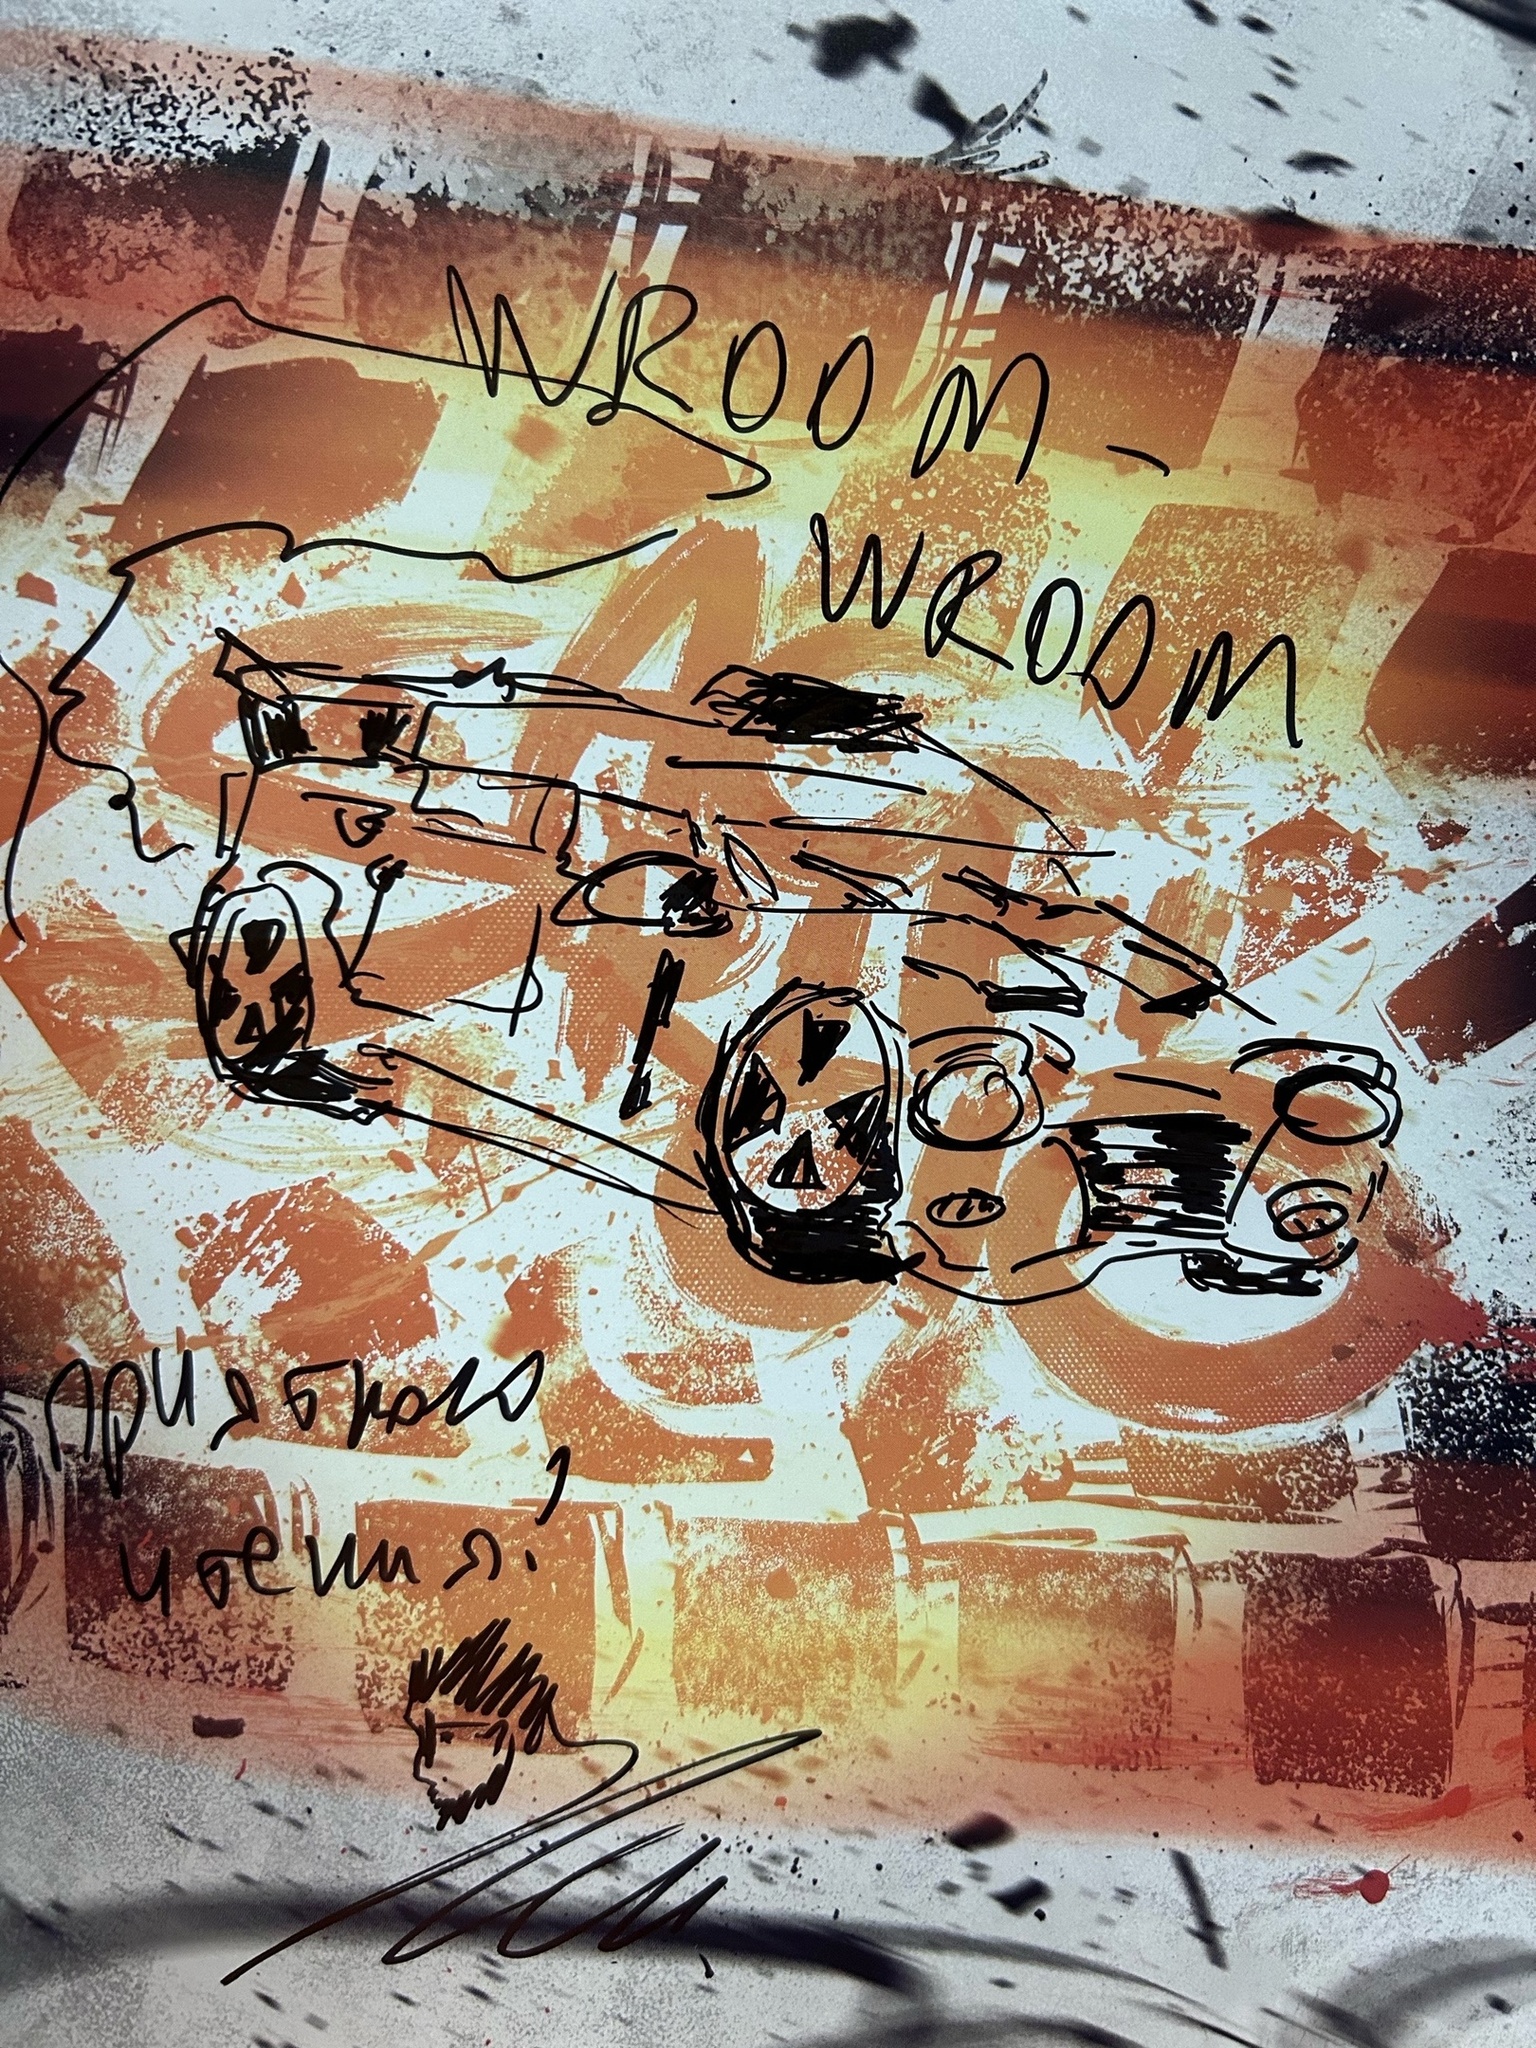 WROOM-
WROOM
приятного
чтения!